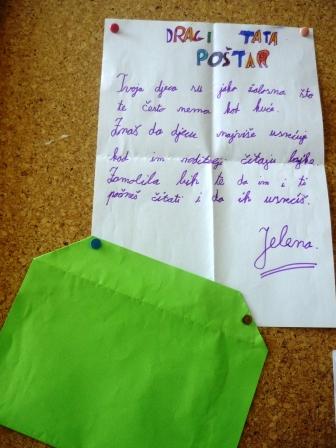 DRAGI TATA
POŠTAR
Tvoja djeca su jako žalosna što
te često nema kod kuće.
Znaš da djecu najviše usrećuje
kad im roditelji čitaju bajke.
Zamolila bih te da im i ti
počneš čitati i da ih usrećiš.
Jelena